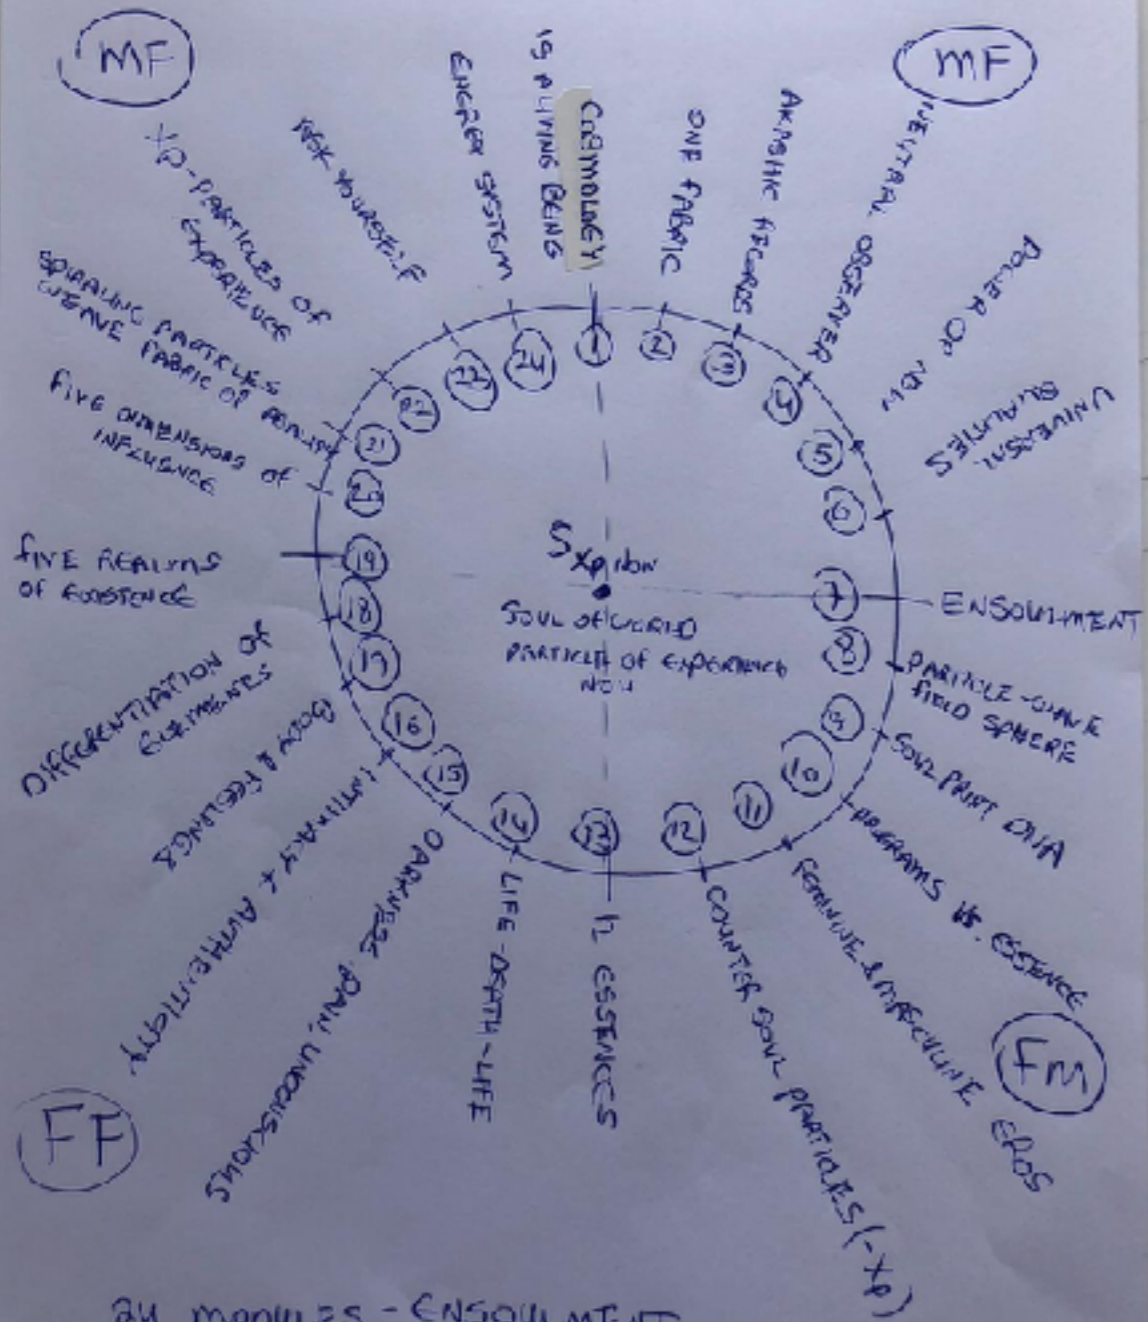 MF
MF
COSMOLOGY
IS A LIVING BEING
ONE FABRIC
AKASHIC RECORDS
NEUTRAL OBSERVER
POWER OF NOW
UNIVERSAL
QUALITIES
ENSOULMENT
PARTICLE-WAVE
FIELD SPHERE
SOUL PRINT DNA
PROGRAMS VS. ESSENCE
FEMININE & MASCULINE EROS
COUNTER SOUL PARTICLES (-Xp)
12 ESSENCES
LIFE-DEATH-LIFE
DARKNESS, PAIN, UNCONSCIOUS
INTIMACY & AUTHENTICITY
BODY & FEELINGS
DIFFERENTIATION OF
FIVE REALMS
OF EXISTENCE
FIVE DIMENSIONS OF
INFLUENCE
SPIRALING PARTICLES
WEAVE FABRIC OF REALITY
XP-PARTICLES OF
EXPERIENCE
ASK YOURSELF
ENERGY SYSTEM
1
2
3
4
5
6
7
8
9
10
11
12
13
14
15
16
18
19
20
21
22
23
24
SXp NOW
SOUL OF WORLD
PARTICLE OF EXPERIENCE
NOW
FM
FF
24 MODULES - ENSOULMENT